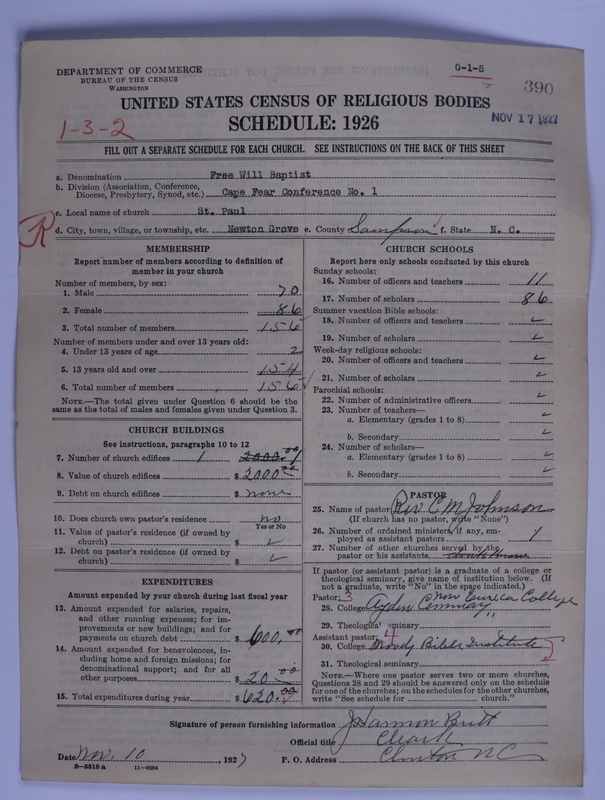 DEPARTMENT OF COMMERCE
BUREAU OF THE CENSUS
WASHINGTON
0-1-5
390
UNITED STATES CENSUS OF RELIGIOUS BODIES
SCHEDULE: 1926
NOV 17 1927
1-3-2
FILL OUT A SEPARATE SCHEDULE FOR EACH CHURCH. SEE INSTRUCTIONS ON THE BACK OF THIS SHEET
a. Denomination Free Will Baptist
b. Division (Association, Conference, Diocese, Presbytery, Synod, etc.) Cape Fear Conference No. 1
c. Local name of church St. Paul
R
d. City, town, village, or township, etc. Newton Grove e. County Sampson f. State N. C.
MEMBERSHIP
Report number of members according to definition of
member in your church
Number of members, by sex:
1. Male 70
2. Female 86
3. Total number of members 156
Number of members under and over 13 years old:
4. Under 13 years of age 2
5. 13 years old and over 154
6. Total number of members 156
NOTE.—The total given under Question 6 should be
same as the total of males and females given under Question 3.
CHURCH BUILDINGS
See instructions, paragraphs 10 to 12
7. Number of church edifices 1 2000.00 1
8. Value of church edifices $ 2000.00
9. Debt on church edifices $ none
10. Does church own pastor's residence no
Yes or No
11. Value of pastor's residence (if owned by
church) $ ✓
12. Debt on pastor's residence (if owned by
church) $ ✓
EXPENDITURES
Amount expended by church during last fiscal year
13. Amount expended for salaries, repairs,
and other running expenses; for im-
provements or new buildings; and for
payments on church debt $ 600.00
14. Amount expended for benevolences, in-
cluding home and foreign missions; for
denominational support; and for all
other purposes $ 20.00
15. Total expenditures during year $ 620.00
CHURCH SCHOOLS
Report here only schools conducted by this church
Sunday schools:
16. Number of officers and teachers 11
17. Number of scholars 86
Summer vacation Bible schools:
18. Number of officers and teachers ✓
19. Number of scholars ✓
Week-day religious schools:
20. Number of officers and teachers ✓
21. Number of scholars ✓
Parochial schools:
22. Number of administrative officers ✓
23. Number of teachers—
a. Elementary (grades 1 to 8) ✓
b. Secondary ✓
24. Number of scholars—
a. Elementary (grades 1 to 8) ✓
b. Secondary ✓
PASTOR
25. Name of pastor Rev E M Johnson
(If church has no pastor, write "None")
26. Number of ordained ministers, if any, em-
ployed as assistant pastors 1
27. Number of other churches served by the
pastor or his assistants
If pastor (or assistant pastor) is a graduate of a college or
theological seminary, give name of institution below. (If
not a graduate, write "No" in the space indicated.)
Pastor: 3
28. College Ayden Eureca College
29. Theological seminary "
Assistant pastor: 4
30. College Moody Bible Institute
31. Theological seminary
NOTE.—Where one pastor serves two or more churches,
Questions 28 and 29 should be answered only on the schedule
for one of the churches; on the schedules for the other churches,
write "See schedule for church."
Signature of person furnishing information J Harmon Britt
Official title Cleark
Date Nov. 10, 1927 P. O. Address Clinton N C
8-5518 a 11-9034